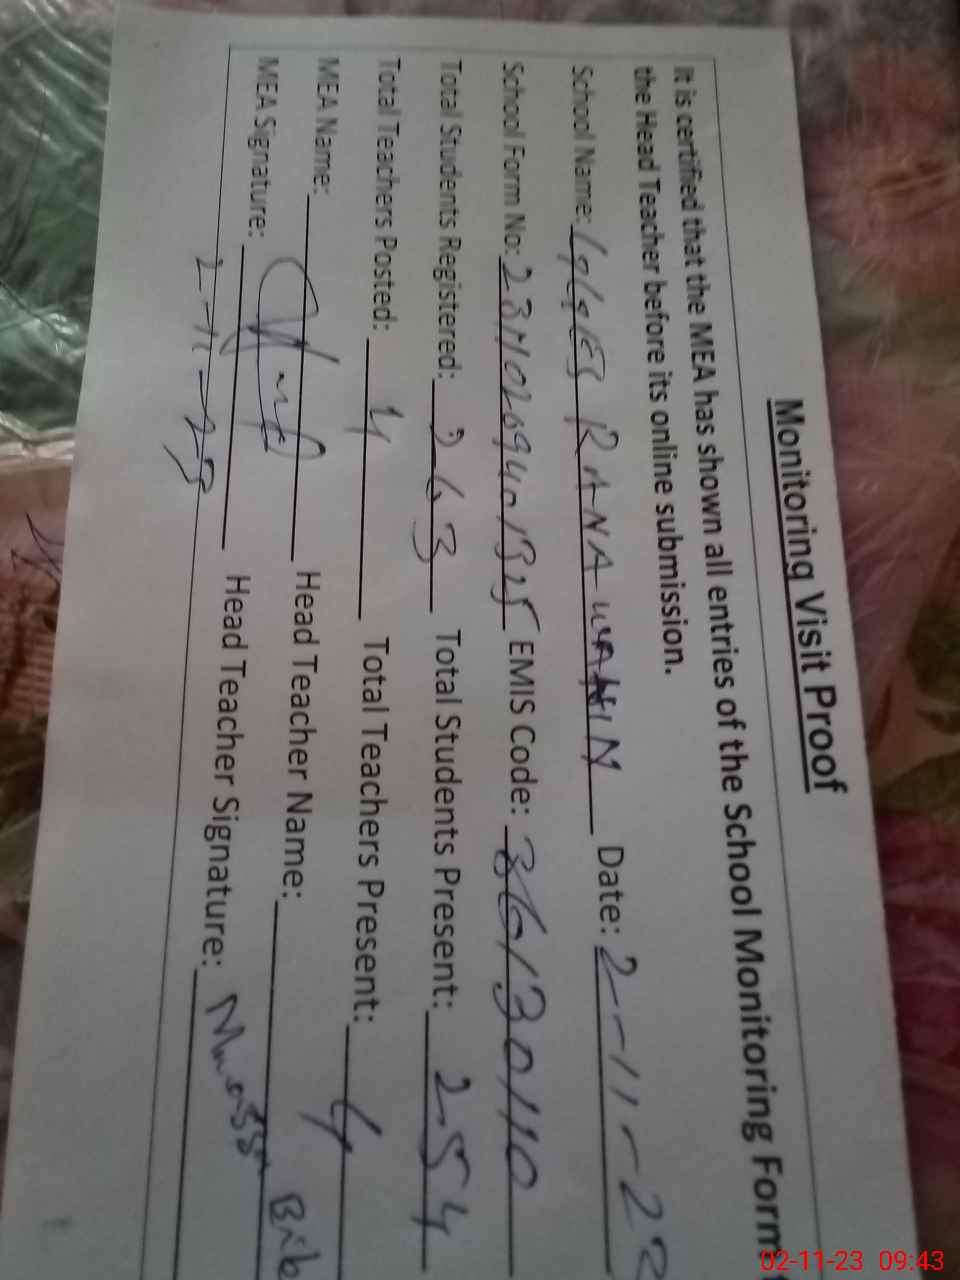 Monitoring Visit Proof
It is certified that the MEA has shown all entries of the School Monitoring Form
the Head Teacher before its online submission.
School Name: RANA WAHIN Date: 2-11-23
School Form No: EMIS Code: 36130110
Total Students Registered: 263 Total Students Present: 254
Total Teachers Posted: 4 Total Teachers Present: 4
MEA Name: Head Teacher Name:
MEA Signature: Head Teacher Signature:
2-11-23
02-11-23 09:43